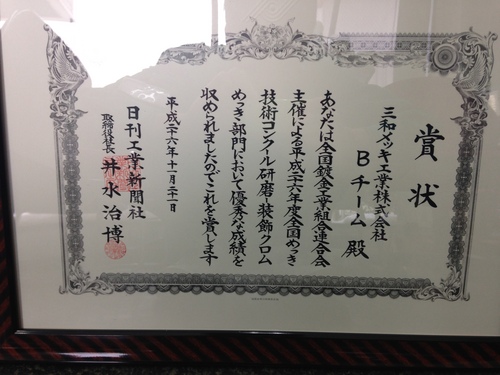 賞状
三和メッキ工業株式会社
Bチーム 殿
あなたは全国鍍金工業組合連合会
主催による平成二十六年度全国めっき
技術コンクール研磨-装飾クロム
めっき部門において優秀な成績を
収められましたのでこれを賞します
平成二十六年十一月二十一日
日刊工業新聞社
取締役社長 井水治博